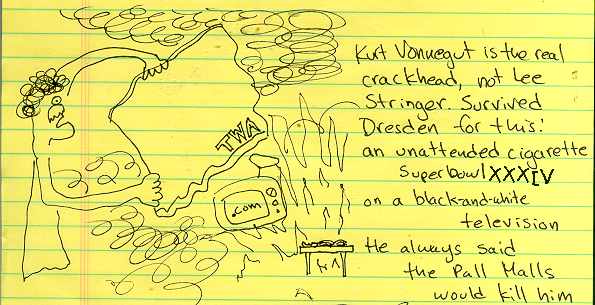 TWA
.com
Kurt Vonnegut is the real
crackhead, not Lee
Stringer. Survived
Dresden for this:
an unattended cigarette
Superbowl XXXIV
on a black-and-white
television
He always said
the Pall Malls
would kill him